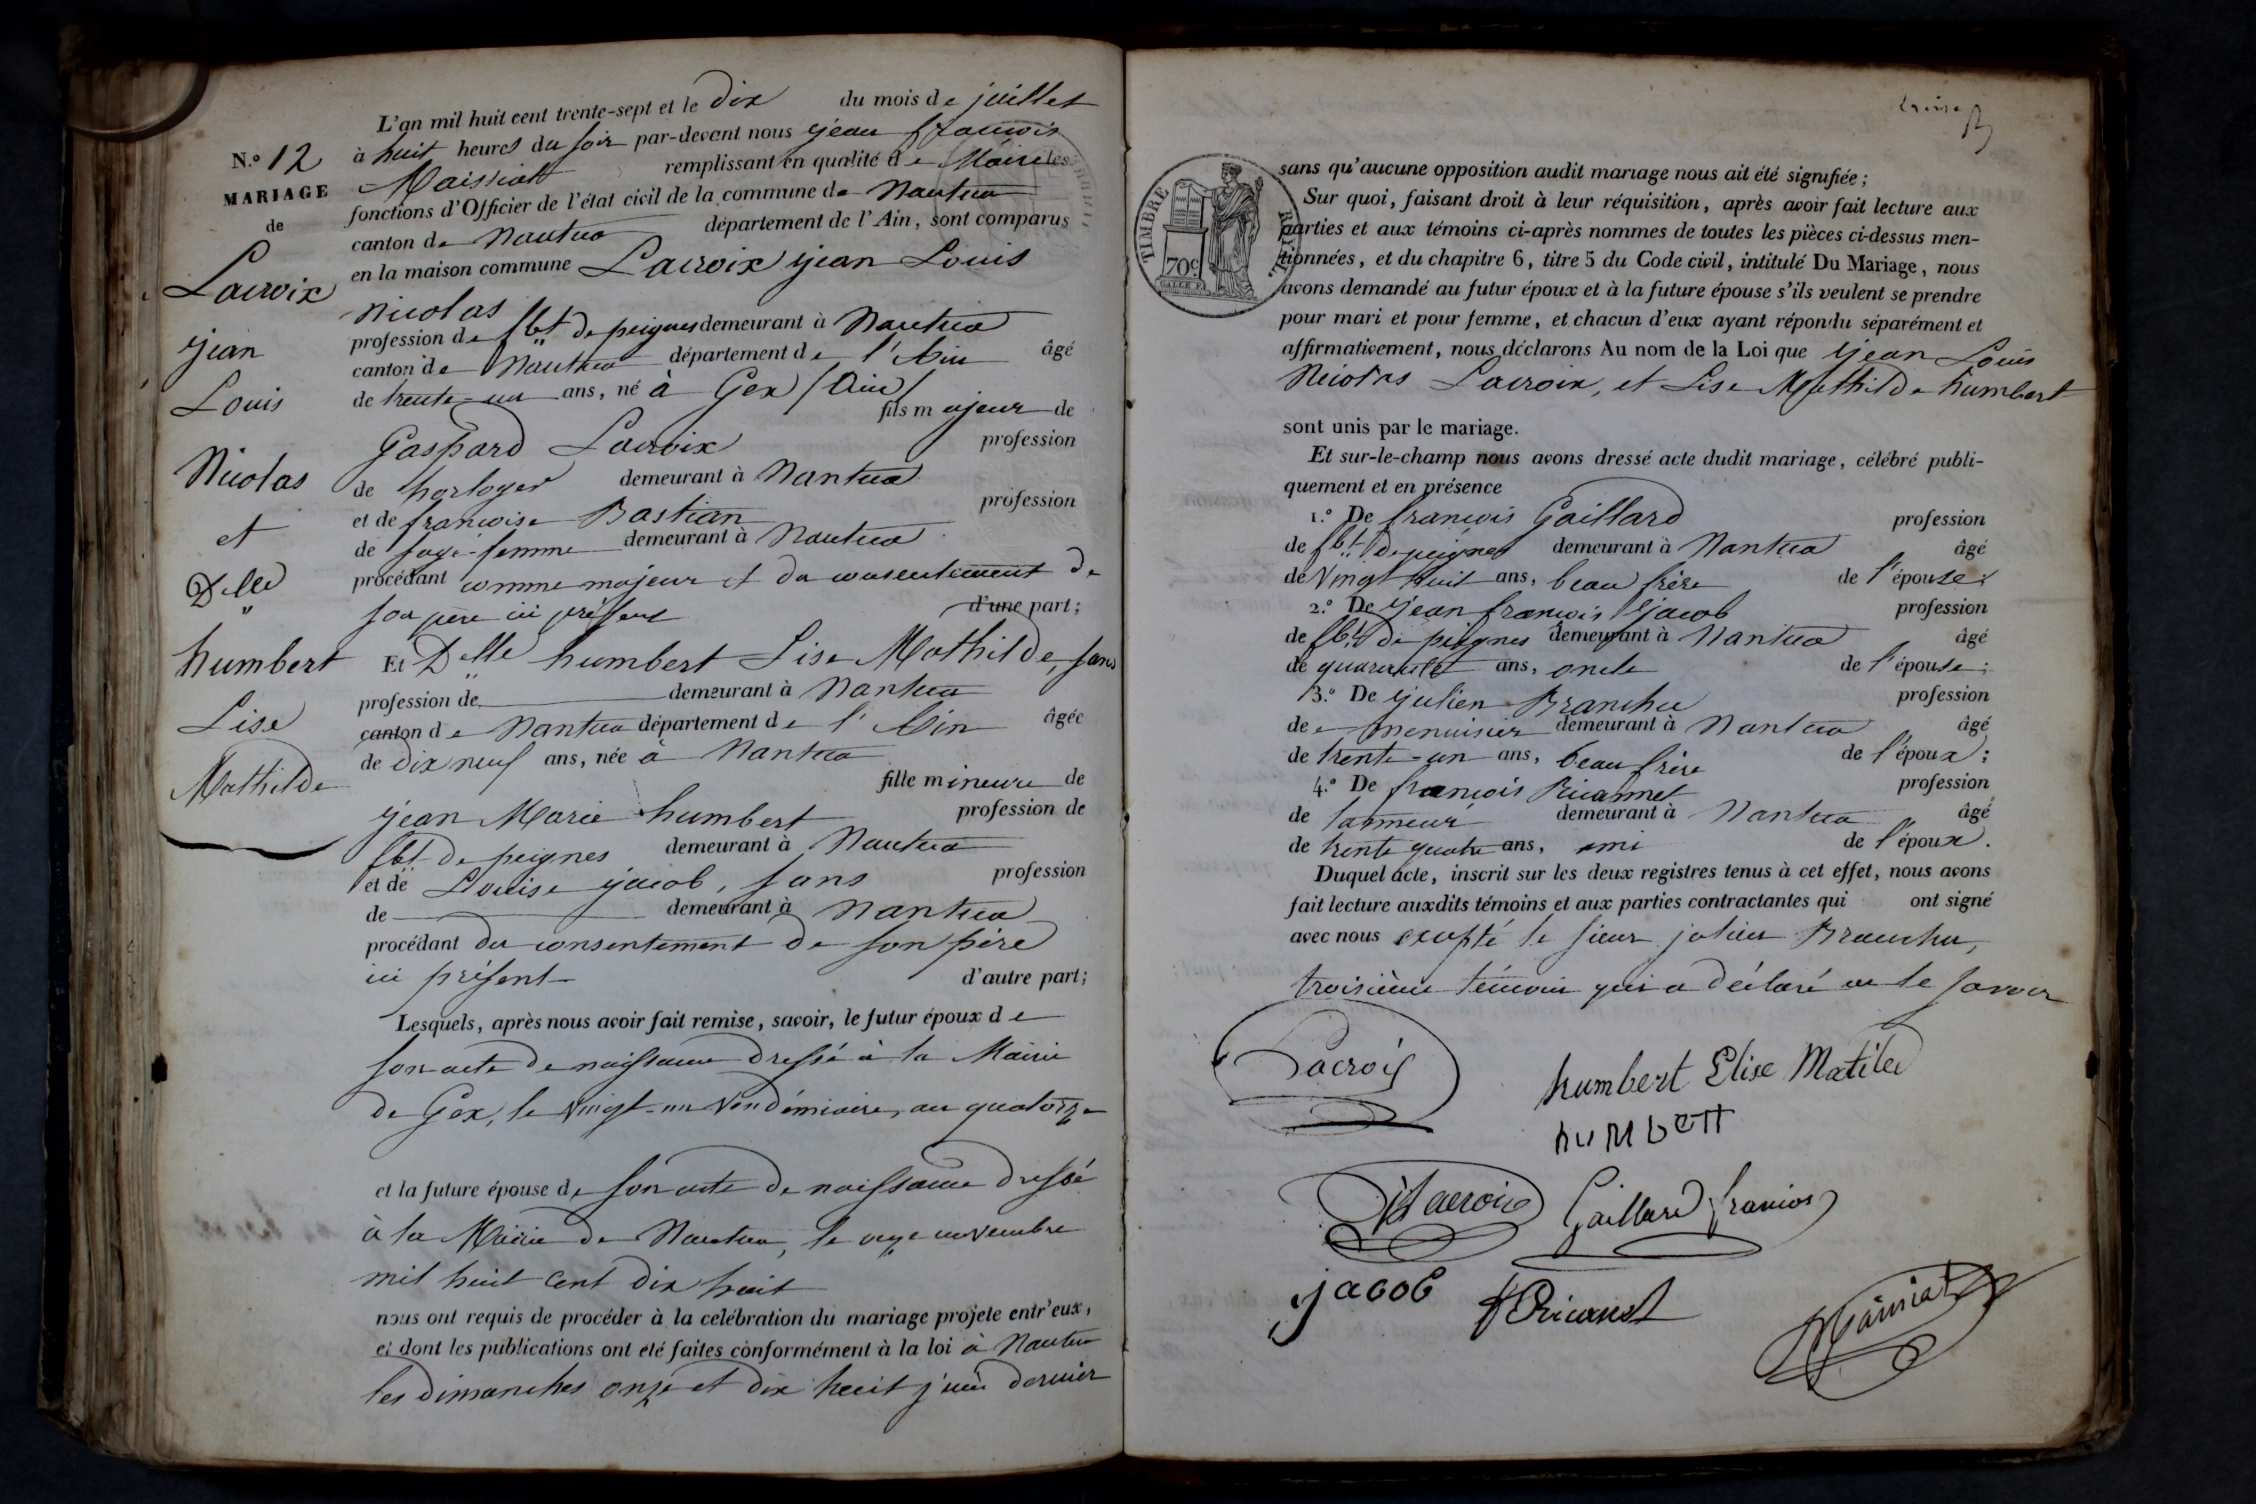 L'an mil huit cent trente-sept et le dix du mois de juillet
à huit heures du soir par-devant nous jean françois
N.º 12
Maissiat remplissant en qualité de Maire les
MARIAGE
fonctions d'Officier de l'état civil de la commune de Nantua
de
canton de Nantua département de l'Ain, sont comparus
en la maison commune Lacroix jean Louis
Lacroix
Nicolas
profession de fbt de peignes demeurant à Nantua
jean
canton de Nantua département de l'Ain âgé
Louis
de trente-un ans, né à Gex (Ain)
fils majeur de
Gaspard Lacroix profession
Nicolas
de horloger demeurant à Nantua
et de françoise Bastian profession
et
de sage-femme demeurant à Nantua
procédant comme majeur et du consentement de
Dlle
son père ici présent d'une part;
humbert
Et Dlle humbert Lise Mathilde, sans
profession de demeurant à Nantua
Lise
canton de Nantua département de l'Ain âgée
de dix neuf ans, née à Nantua
Mathilde
fille mineure de
jean Marie humbert profession de
fbt de peignes demeurant à Nantua
et de Louise jacob, sans profession
de demeurant à Nantua
procédant du consentement de son père
ici présent d'autre part;
Lesquels, après nous avoir fait remise, savoir, le futur époux de
son acte de naissance dressé à la Mairie
de Gex, le vingt-un Vendémiaire, an quatorze
et la future épouse de son acte de naissance dressé
à la Mairie de Nantua, le onze novembre
mil huit cent dix huit
nous ont requis de procéder à la celébration du mariage projete entr'eux,
et dont les publications ont été faites conformément à la loi à Nantua
les dimanches onze et dix huit juin dernier
TIMBRE
ROYAL
70c
sans qu'aucune opposition audit mariage nous ait été signifiée;
Sur quoi, faisant droit à leur réquisition, après avoir fait lecture aux
parties et aux témoins ci-après nommes de toutes les pièces ci-dessus men-
tionnées, et du chapitre 6, titre 5 du Code civil, intitulé Du Mariage, nous
avons demandé au futur époux et à la future épouse s'ils veulent se prendre
pour mari et pour femme, et chacun d'eux ayant répondu séparément et
affirmativement, nous déclarons Au nom de la Loi que jean Louis
Nicolas Lacroix, et Lise Mathilde humbert
sont unis par le mariage.
Et sur-le-champ nous avons dressé acte dudit mariage, célébré publi-
quement et en présence
1.º De françois Gaillard profession
de fbt de peignes demeurant à Nantua âgé
de Vingt huit ans, beau frère de l'épouse;
2.º De jean françois jacob profession
de fbt de peignes demeurant à Nantua âgé
de ans, oncle de l'épouse;
3.º De julien Branchu profession
de menuisier demeurant à Nantua âgé
de trente-un ans, beau frère de l'époux;
4.º De françois Ricannet profession
de tanneur demeurant à Nantua âgé
de trente quatre ans, ami de l'époux.
Duquel acte, inscrit sur les deux registres tenus à cet effet, nous avons
fait lecture auxdits témoins et aux parties contractantes qui ont signé
avec nous excepté le sieur julien Branchu,
troisième témoin qui a déclaré ne le savoir
Lacroix
humbert Elise Matilde
humbert
Lacroix
Gaillard francois
jacob
Ricanet
Maissiat